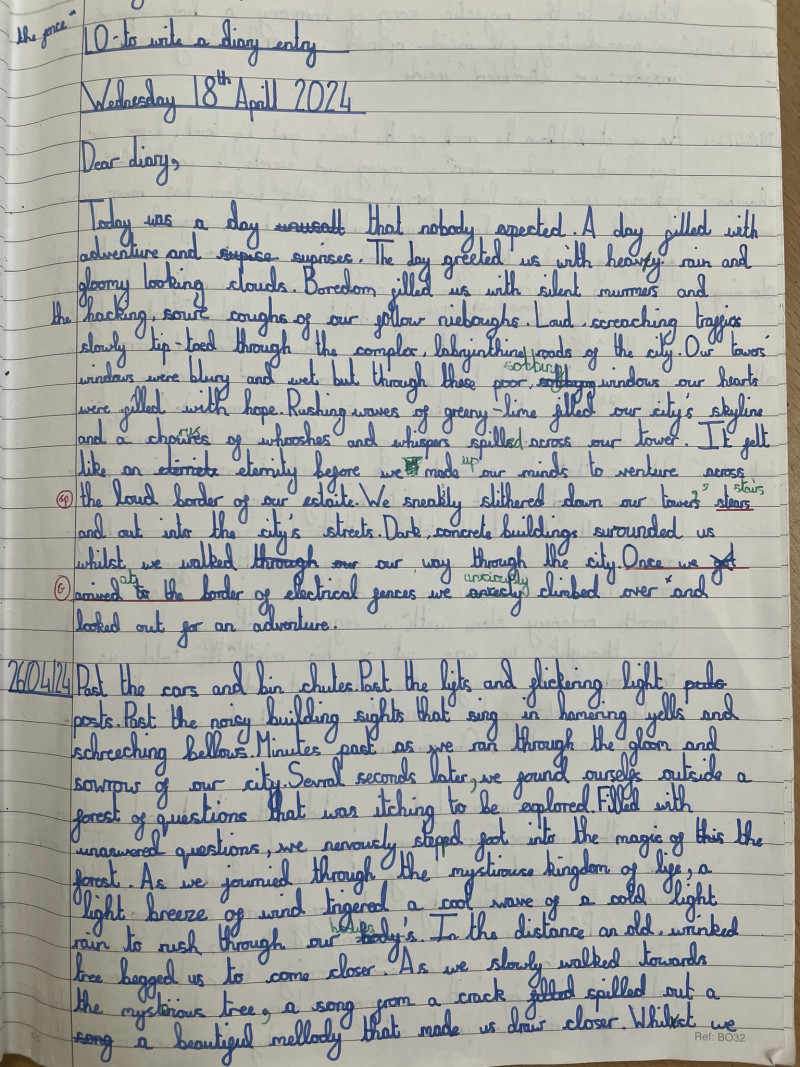 the fence"
LO-to write a diary entry
Wednesday 18th Aprill 2024
Dear diary,
Today was a day unusall that nobody expected. A day filled with
adventure and supise suprises. The day greeted us with heavty rain and
gloomy looking clouds. Boredom filled us with silent murmers and
the hacking, sour coughs of our follow nieboughs. Loud, screaching traffics
slowly tip-toed through the complex, labryinthined roads of the city. Our towers'
sobbing
windows were blury and wet but through these poor, windows our hearts
were filled with hope. Rushing waves of greeny-lime filled our city's skyline
and a chorus of whooshes and whispers spilled across our tower. It felt
like an eternity before we made up our minds to venture across
sp the loud border of our estaite. We sneakly slithered down our towers's stears stairs
and out into the city's streets. Dark, concrete buildings surounded us
whilst we walked through our our way through the city. Once we got
G arrived at to the border of electrical fences we anxiously climbed over * and
looked out for an adventure.
26/04/24 Past the cars and bin chutes. Past the lifts and flickering light
posts. Past the noisy building sights that sing in hamering yells and
schreeching bellows. Minutes past as we ran through the gloom and
sowrows of our city. Sevral seconds later, we found ourselfs outside a
forest of questions that was itching to be explored. Filled with
unanswered questions, we nervously stepped foot into the magic of this the
forest. As we journied through the mystiriouse kingdom of life, a
light breeze of wind trigered a cool wave of a cold light
bodies
rain to rush through our body's. In the distance an old, wrinked
tree begged us to come closer. As we slowly walked towards
the mystirious tree, a song from a crack filled spilled out a
song a beautiful mellody that made us draw closer. Whilst we
Ref: BO32